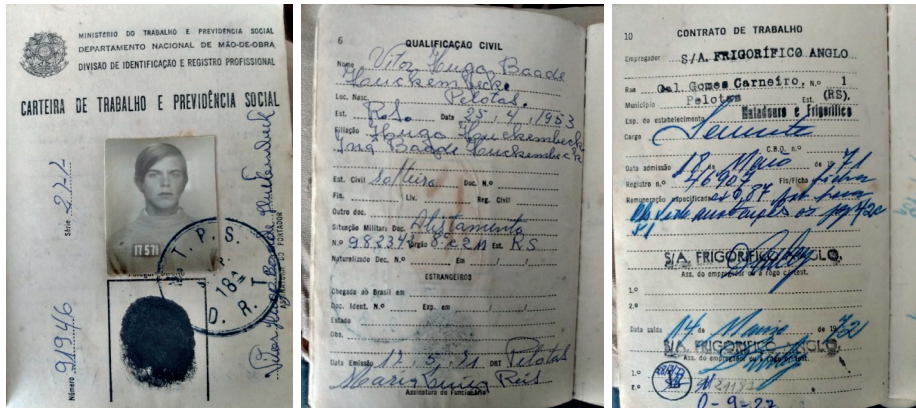 MINISTÉRIO DO TRABALHO E PREVIDÊNCIA SOCIAL
DEPARTAMENTO NACIONAL DE MÃO-DE-OBRA
DIVISÃO DE IDENTIFICAÇÃO E REGISTRO PROFISSIONAL
CARTEIRA DE TRABALHO E PREVIDÊNCIA SOCIAL
Número 91946 Série 271
17 571
T. P. S.
18ª
D. R. T.
PORTADOR
6
QUALIFICAÇÃO CIVIL
Nome Vitor Hugo Baade
Huckembeck
Loc. Nasc. Pelotas.
Est. R.S. Data 25. 4. 1953
Filiação Hugo Huckembeck
Ing Baade Huckembeck
Est. Civil Solteiro Doc. N.º
Fls. Liv. Reg. Civil
Outro doc.
Situação Militar: Doc. Alistamento
N.º 982343 Órgão Est. RS
Naturalizado Dec. N.º Em
ESTRANGEIROS
Chegada ao Brasil em
Doc. Ident. N.º Exp. em
Estado
Obs.
Data Emissão 17. 5. 71 DRT Pelotas
Maria Reis
Assinatura do Funcionário
10
CONTRATO DE TRABALHO
Empregador S/A. FRIGORÍFICO ANGLO
Rua Gal. Gomes Carneiro, N.º 1
Município Pelotas Est. (RS).
Esp. do estabelecimento Matadouro e Frigorífico
Cargo Servente
C.B.O. n.º
Data admissão 18 de Maio de 1971
Registro n.º 46907 Fls/Ficha Ficha
Remuneração especificada 0,87 por hora
S/A. FRIGORÍFICO ANGLO.
Ass. do empregador ou a rogo c/test.
1.º
2.º
Data saída 14 de de 1972
S/A. FRIGORÍFICO ANGLO.
Ass. do empregador ou a rogo c/test.
1.º
2.º